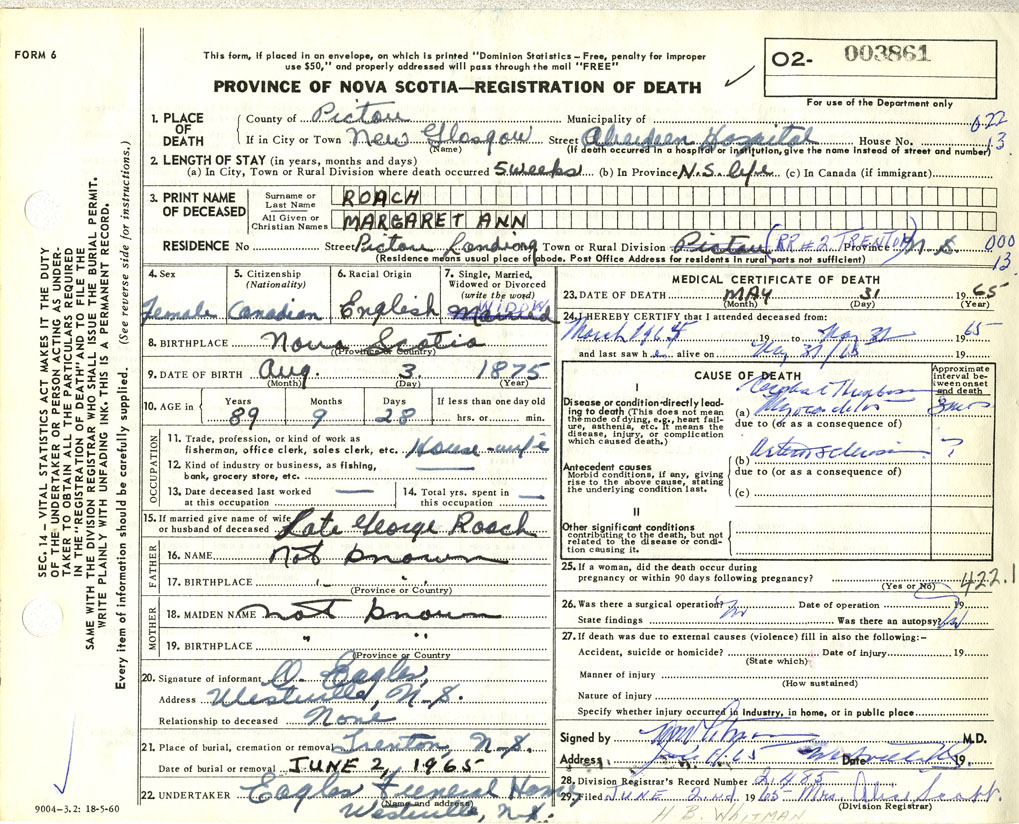 FORM 6
This form, if placed in an envelope, on which is printed "Dominion Statistics – Free, penalty for improper
use $50," and properly addressed will pass through the mail "FREE"
PROVINCE OF NOVA SCOTIA—REGISTRATION OF DEATH
O2- 003861
For use of the Department only
1. PLACE OF DEATH
County of Pictou Municipality of 022
If in City or Town New Glasgow Street Aberdeen Hospital House No. 13
(Name) (If death occurred in a hospital or institution, give the name instead of street and number)
2. LENGTH OF STAY (in years, months and days)
(a) In City, Town or Rural Division where death occurred 5 weeks (b) In Province N.S. life (c) In Canada (if immigrant)
3. PRINT NAME OF DECEASED
Surname or Last Name ROACH
All Given or Christian Names MARGARET ANN
RESIDENCE No Street Pictou Landing Town or Rural Division Pictou (RR #2 TRENTON) Province N S 000
(Residence means usual place of abode. Post Office Address for residents in rural parts not sufficient) 13.
4. Sex
Female
5. Citizenship
(Nationality)
Canadian
6. Racial Origin
English
7. Single, Married,
Widowed or Divorced
(write the word)
WIDOW
Married
8. BIRTHPLACE Nova Scotia
(Province or Country)
9. DATE OF BIRTH Aug. 3 1875
(Month) (Day) (Year)
10. AGE in Years Months Days If less than one day old
89 9 28 hrs. or min.
OCCUPATION
11. Trade, profession, or kind of work as
fisherman, office clerk, sales clerk, etc. House-wife
12. Kind of industry or business, as fishing,
bank, grocery store, etc. —
13. Date deceased last worked
at this occupation —
14. Total yrs. spent in
this occupation —
15. If married give name of wife
or husband of deceased Late George Roach
FATHER
16. NAME not known
17. BIRTHPLACE " "
(Province or Country)
MOTHER
18. MAIDEN NAME not known
19. BIRTHPLACE " "
(Province or Country
20. Signature of informant O. Eagles,
Address Westville, N.S.
Relationship to deceased None
21. Place of burial, cremation or removal Trenton, N.S.
Date of burial or removal JUNE 2, 1965
22. UNDERTAKER Eagles Funeral Home
(Name and address)
Westville, N.S.
MEDICAL CERTIFICATE OF DEATH
23. DATE OF DEATH MAY 31 1965
(Month) (Day) (Year)
24. I HEREBY CERTIFY that I attended deceased from:
March 1965 19 to May 31 1965
and last saw h e alive on May 31/65 19
CAUSE OF DEATH
Approximate
interval between onset
and death
I
Disease or condition directly leading to death (This does not
mean the mode of dying, e.g., heart failure, asthenia, etc. It means the
disease, injury, or complication
which caused death.)
(a) Myocarditis
due to (or as a consequence of)
Antecedent causes
Morbid conditions, if any, giving
rise to the above cause, stating
the underlying condition last.
(b) Arteriosclerosis ?
due to (or as a consequence of)
(c)
II
Other significant conditions
contributing to the death, but not
related to the disease or condition causing it.
25. If a woman, did the death occur during
pregnancy or within 90 days following pregnancy? 422.1
(Yes or No)
26. Was there a surgical operation? No Date of operation 19
State findings Was there an autopsy?
27. If death was due to external causes (violence) fill in also the following:–
Accident, suicide or homicide? Date of injury 19
(State which)
Manner of injury
(How sustained)
Nature of injury
Specify whether injury occurred in industry, in home, or in public place
Signed by M.D.
Address Date 19
28. Division Registrar's Record Number 2,485
29. Filed JUNE 2nd 1965 Mrs. Alice Scott.
(Division Registrar)
H B. WHITMAN
SEC. 14—VITAL STATISTICS ACT MAKES IT THE DUTY
OF THE UNDERTAKER OR PERSON ACTING AS UNDERTAKER TO OBTAIN ALL THE PARTICULARS REQUIRED
IN THE "REGISTRATION OF DEATH" AND TO FILE THE
SAME WITH THE DIVISION REGISTRAR WHO SHALL ISSUE THE BURIAL PERMIT.
WRITE PLAINLY WITH UNFADING INK. THIS IS A PERMANENT RECORD.
Every item of information should be carefully supplied. (See reverse side for instructions.)
9004–3.2: 18-5-60